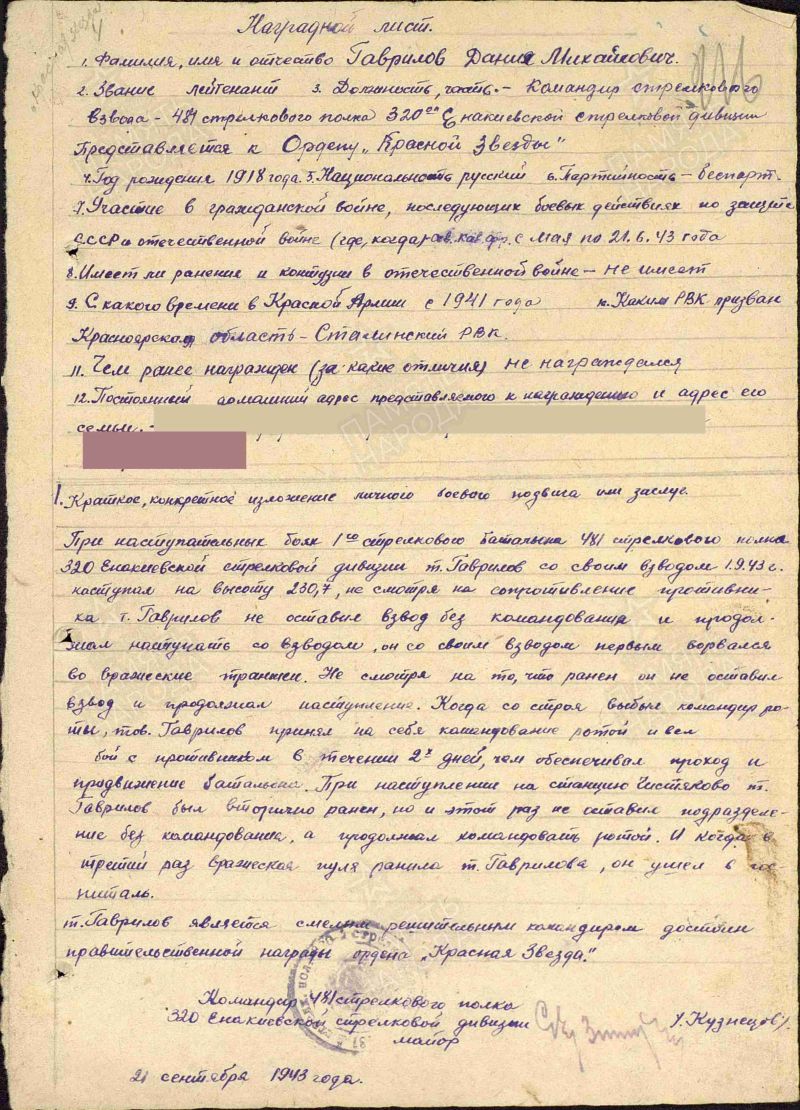 Наградной лист.
1. Фамилия, имя и отчество Гаврилов Данил Михайлович.
2. Звание лейтенант 3. Должность, часть. - Командир стрелкового
взвода - 481 стрелкового полка 320ой Енакиевской стрелковой дивизии
Представляется к Ордену „Красной Звезды"
4. Год рождения 1918 года. 5. Национальность русский 6. Партийность - беспарт.
7. Участие в гражданской войне, последующих боевых действиях по защите
СССР и отечественной войне (где, когда) с Мая по 21.6.43 года
8. Имеет ли ранение и контузии в отечественной войне - не имеет
9. С какого времени в Красной Армии с 1941 года 10. Каким РВК призван
Красноярская область - Сталинский РВК.
11. Чем ранее награжден (за какие отличия) не награждался
12. Постоянный домашний адрес представляемого к награждению и адрес его
семьи. -
1. Краткое, конкретное изложение личного боевого подвига или заслуг.
При наступательных боях 1го стрелкового батальона 481 стрелкового полка
320 Енакиевской стрелковой дивизии т. Гаврилов со своим взводом 1.9.43 г.
наступал на высоту 230,7, не смотря на сопротивление противни-
ка т. Гаврилов не оставил взвод без командования и продол-
жал наступать со взводом, он со своим взводом первым ворвался
во вражеские траншеи. Не смотря на то, что ранен он не оставил
взвод и продолжал наступление. Когда со строя выбыл командир ро-
ты, тов. Гаврилов принял на себя командование ротой и вел
бой с противником в течении 2х дней, чем обеспечивал проход и
продвижение батальона. При наступлении на станцию Чистяково т.
Гаврилов был вторично ранен, но и этот раз не оставил подразделе-
ние без командования, а продолжал командовать ротой. И когда в
третий раз вражеская пуля ранила т. Гаврилова, он ушел в гос
питаль.
т. Гаврилов является смелым решительным командиром достоин
правительственной награды ордена „Красная Звезда."
Командир 481 стрелкового полка
320 Енакиевской стрелковой дивизии
майор /Кузнецов/.
21 сентября 1943 года.
ПАМЯТЬ
НАРОДА